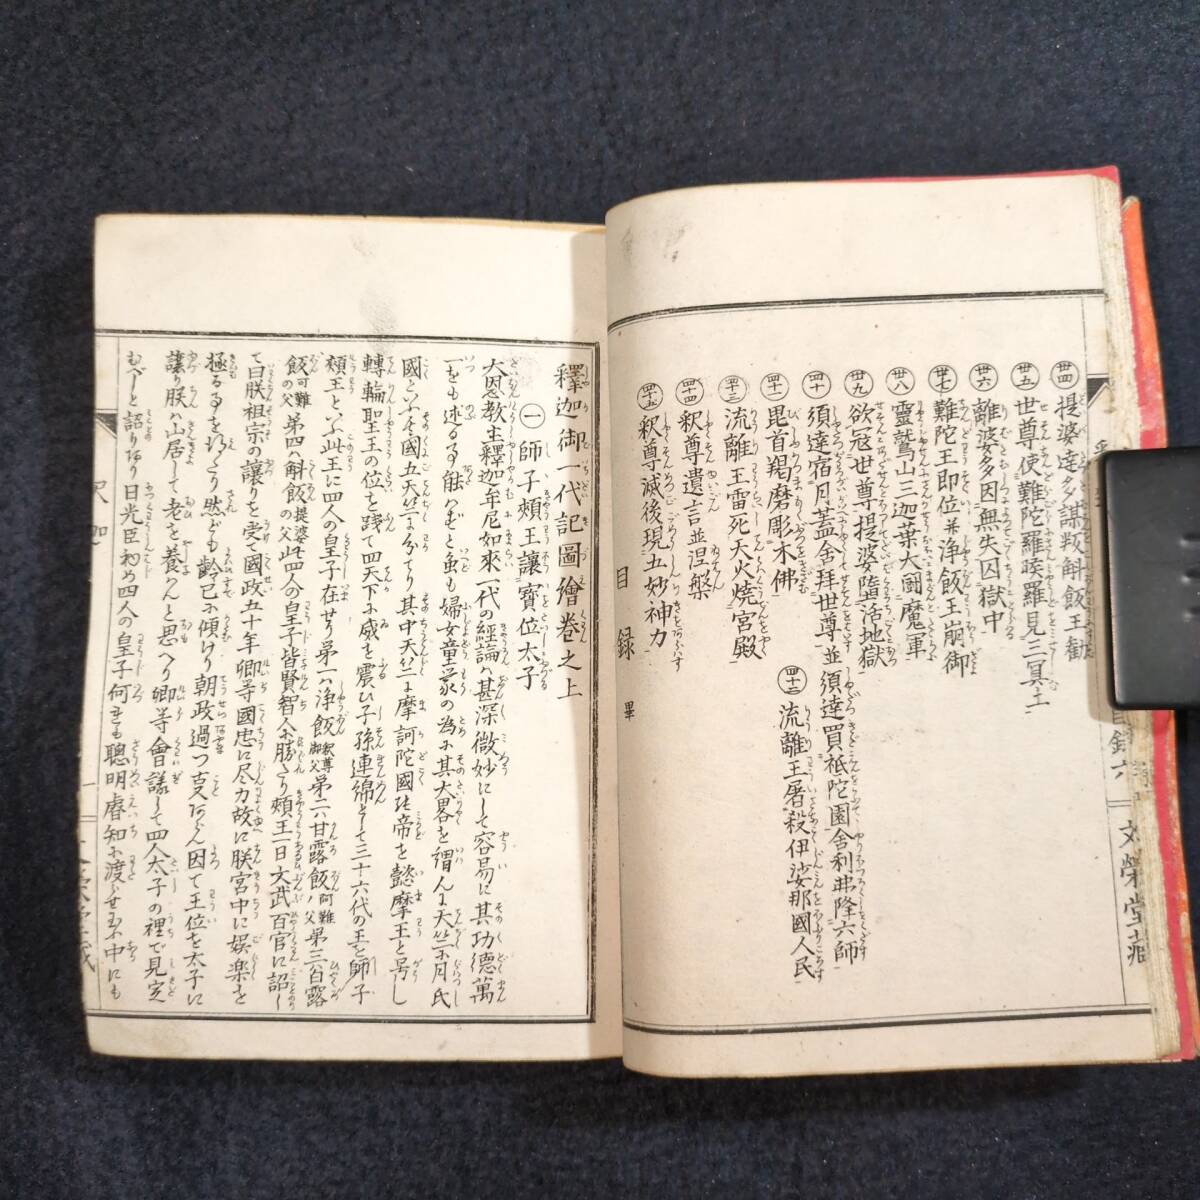 卅四 提婆達多謀叛斛飯王勧
卅五 世尊使難陀羅睺羅見三冥土
卅六 離婆多因無失囚獄中
卅七 難陀王即位並浄飯王崩御
卅八 靈鷲山三迦葉大闘魔軍
卅九 欲冦世尊提婆墮活地獄
四十 須達宿月蓋舍拜世尊並須達買祇陀園舎利弗降六師
四十一 毘首羯磨彫木佛
四十二 流離王屠殺伊娑那國人民
四十三 流離王雷死天火燒宮殿
四十四 釈尊遺言並涅槃
四十五 釈尊滅後現五妙神力
目録 畢
目録 六
文榮堂
釋迦御一代記圖繪巻之上
一 師子頬王讓寶位太子
大恩教主釋迦牟尼如來一代の経論ハ甚深微妙にして容易に其功徳萬
一をも述るる能ハずと虽も婦女童蒙の為に其大畧を謂んに天竺に月氏
國といふ大國五天竺に分てり其中天竺に摩訶陀國の帝を懿摩王と号し
轉輪聖王の位を践て四天下に威を震ひ子孫連綿として三十六代の王を師子
頬王といふ此王に四人の皇子在せり第一ハ浄飯 釈尊の御父 第二ハ甘露飯 阿難の父 第三ハ白露
飯 可難の父 第四ハ斛飯 提婆の父 此四人の皇子皆賢智人に勝たり頬王一日文武百官に詔し
て曰朕祖宗の讓りを受て國政五十年卿等國忠に尽力故に朕宮中に娯楽を
極るる事を得たり然ども齢已に傾けり朝政過つ
因て王位を太子に
讓り朕ハ山居して老を養んと思へり卿等會議して四人太子の裡で見定
むべしと詔りあり日光臣初め四人の皇子何れも聰明睿知に渡らせ玉ふ中にも
釈迦